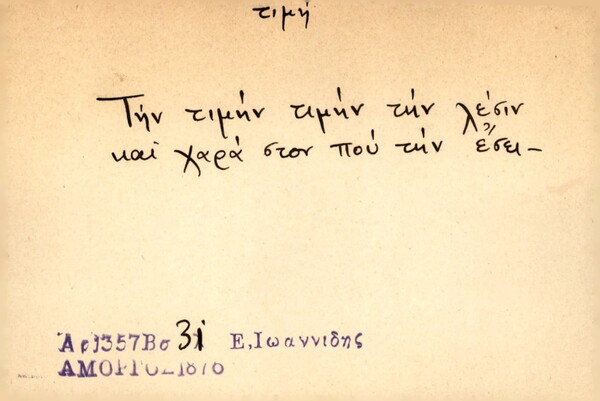 τιμή
Τήν τιμήν τιμήν τήν λέσιν
καί χαρά στον πού τήν έσει-
Αρ1357Βσ 31 Ε.Ιωαννιδης
ΑΜΟΡΓΟΣ1876